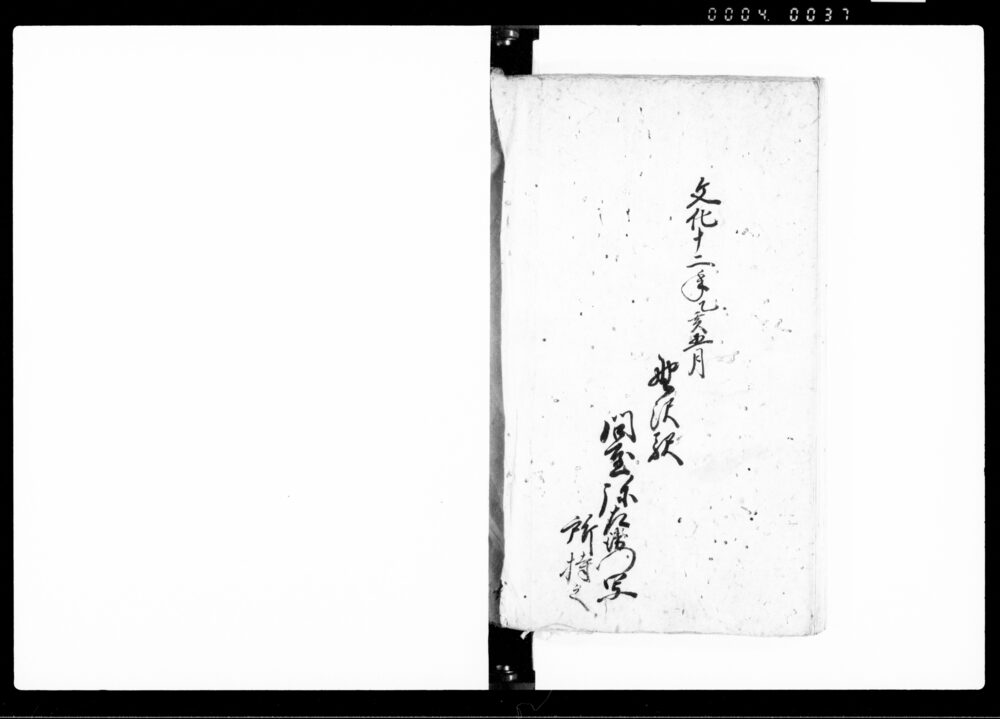 0004. 0037
文化十二年乙亥五月
野沢駅
問屋弥左衛門写
所持之